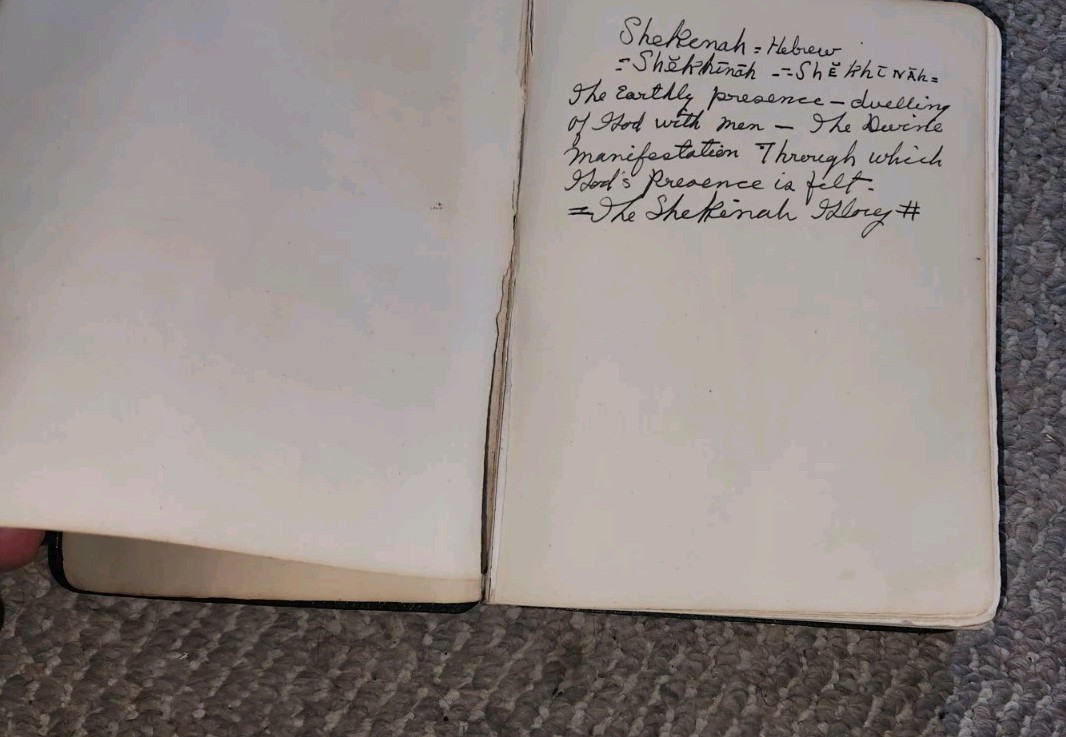 Shekenah = Hebrew
= Shĕkhīnāh -= ShĔkhīNĀh=
The Earthly presence - dwelling
of God with men - The Divine
manifestation Through which
God's Presence is felt.
= The Shekinah Glory #